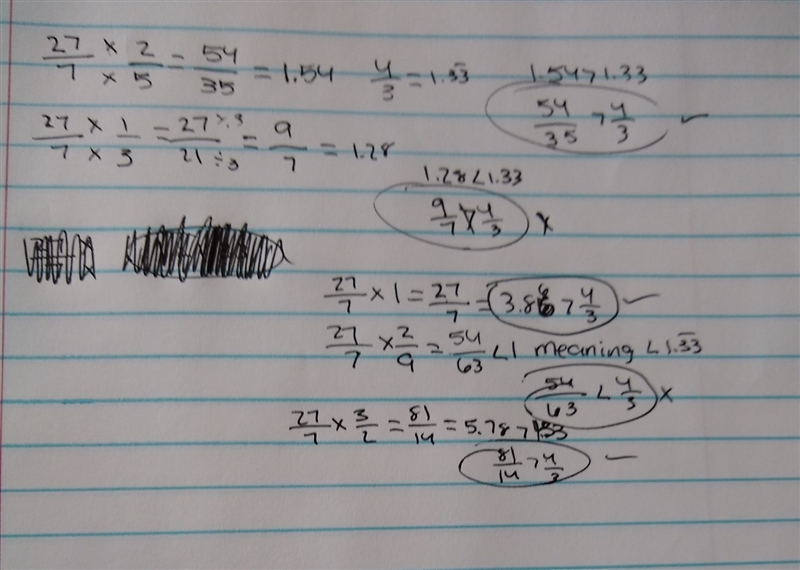 27/7 × 2/5 = 54/35 = 1.54 4/3 = 1.33̅ 1.54 > 1.33
54/35 > 4/3 ✓
27/7 × 1/3 = 27÷3/21÷3 = 9/7 = 1.28
1.28 < 1.33
9/7 4/3 ×
27/7 × 1 = 27/7 = 3.86 > 4/3 ✓
27/7 × 2/9 = 54/63 < 1 meaning < 1.33̅
54/63 < 4/3 ×
27/7 × 3/2 = 81/14 = 5.78 > 1.33
81/14 > 4/3 ✓